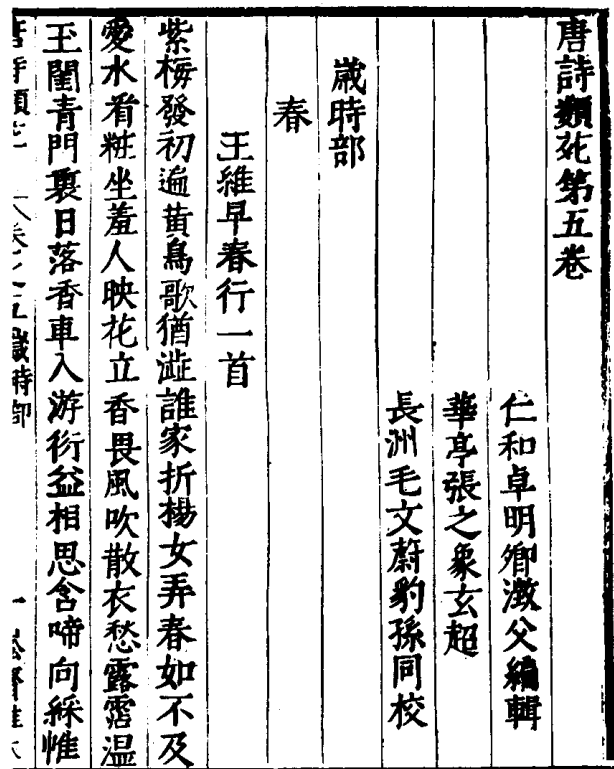 唐詩類苑第五卷
仁和卓明卿澂父編輯
華亭張之象玄超
長洲毛文蔚豹孫同校
歲時部
春
王維早春行一首
紫梅發初遍黃鳥歌猶澁誰家折楊女弄春如不及
愛水看粧坐羞人映花立香畏風吹散衣愁露霑温
玉閨青門裏日落香車入游衍益相思含啼向綵帷
唐詩類苑 卷之五歲時部 一